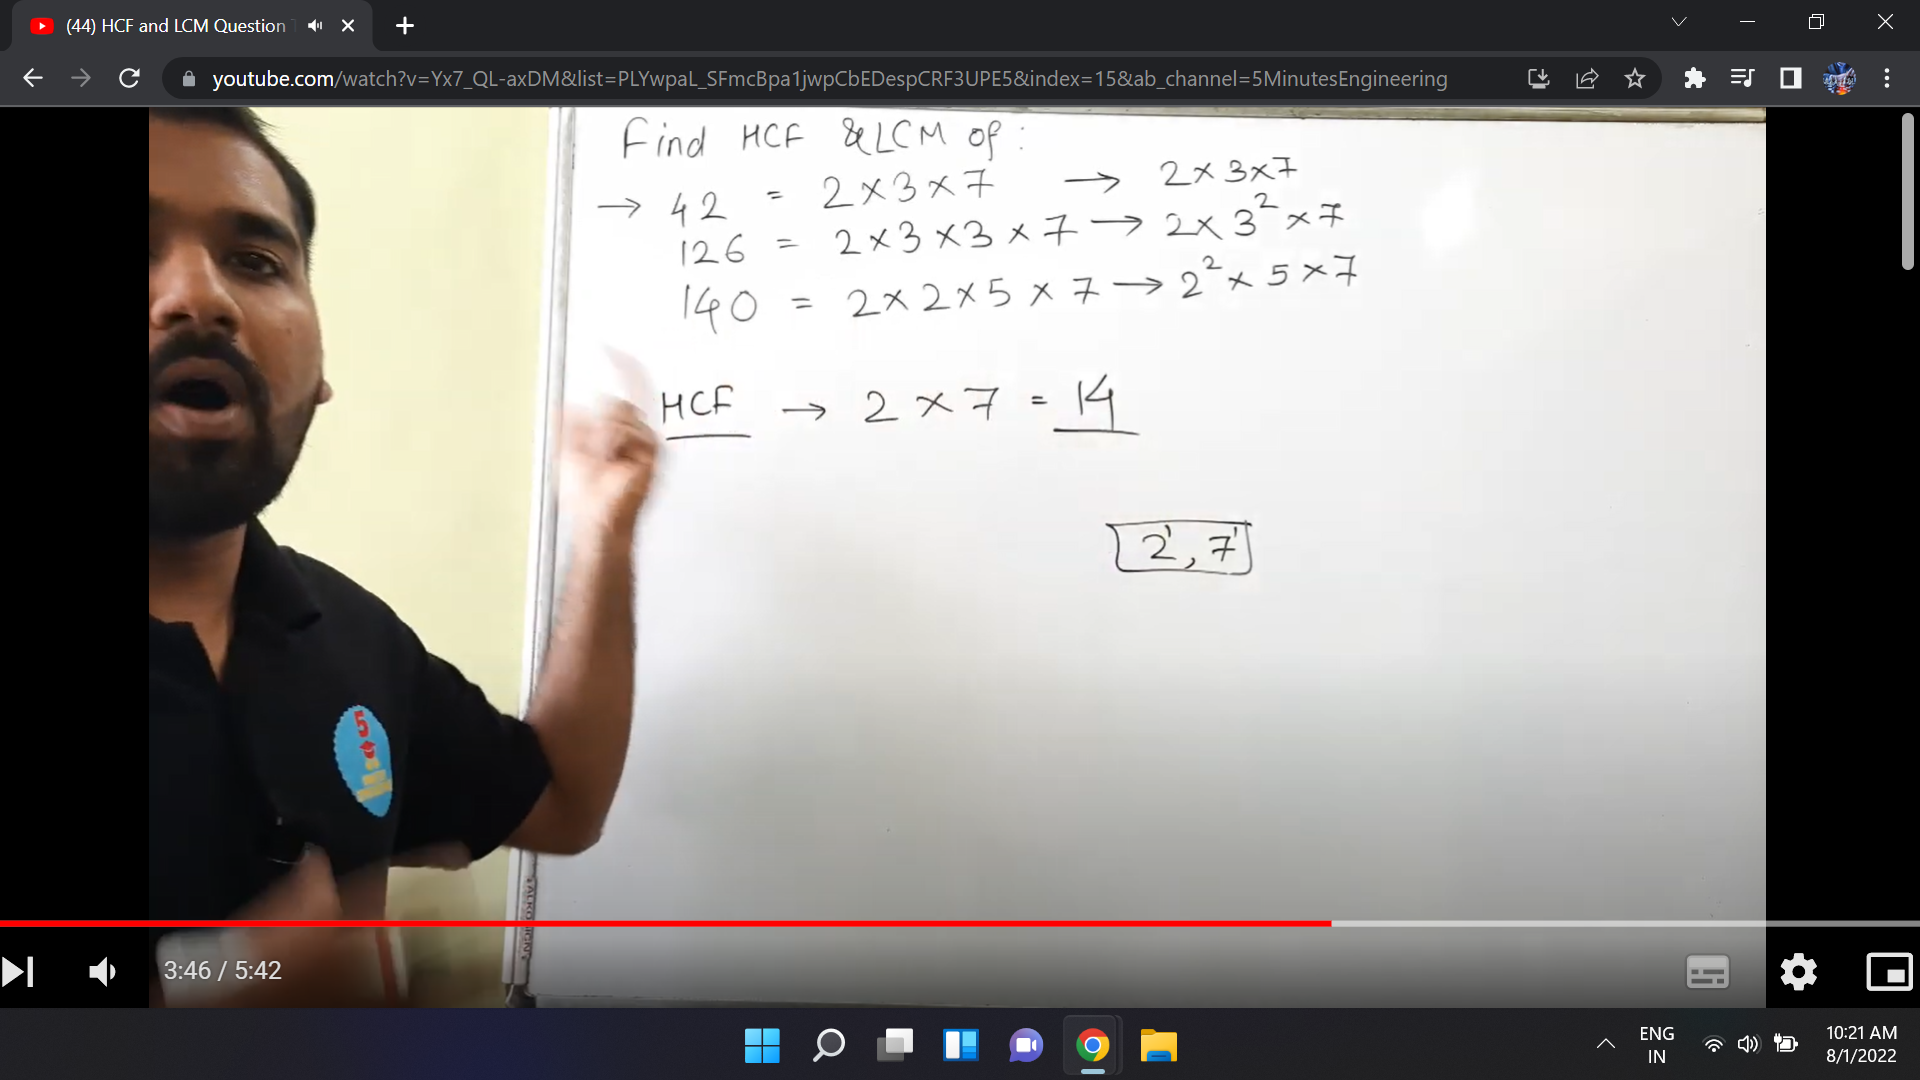 (44) HCF and LCM Question
youtube.com/watch?v=Yx7_QL-axDM&list=PLYwpaL_SFmcBpa1jwpCbEDespCRF3UPE5&index=15&ab_channel=5MinutesEngineering
Find HCF & LCM of :
→ 42 = 2×3×7 → 2×3×7
126 = 2×3×3×7 → 2×3²×7
140 = 2×2×5×7 → 2²×5×7
HCF → 2×7 = 14
2¹, 7¹
5
3:46 / 5:42
ENG
IN
10:21 AM
8/1/2022